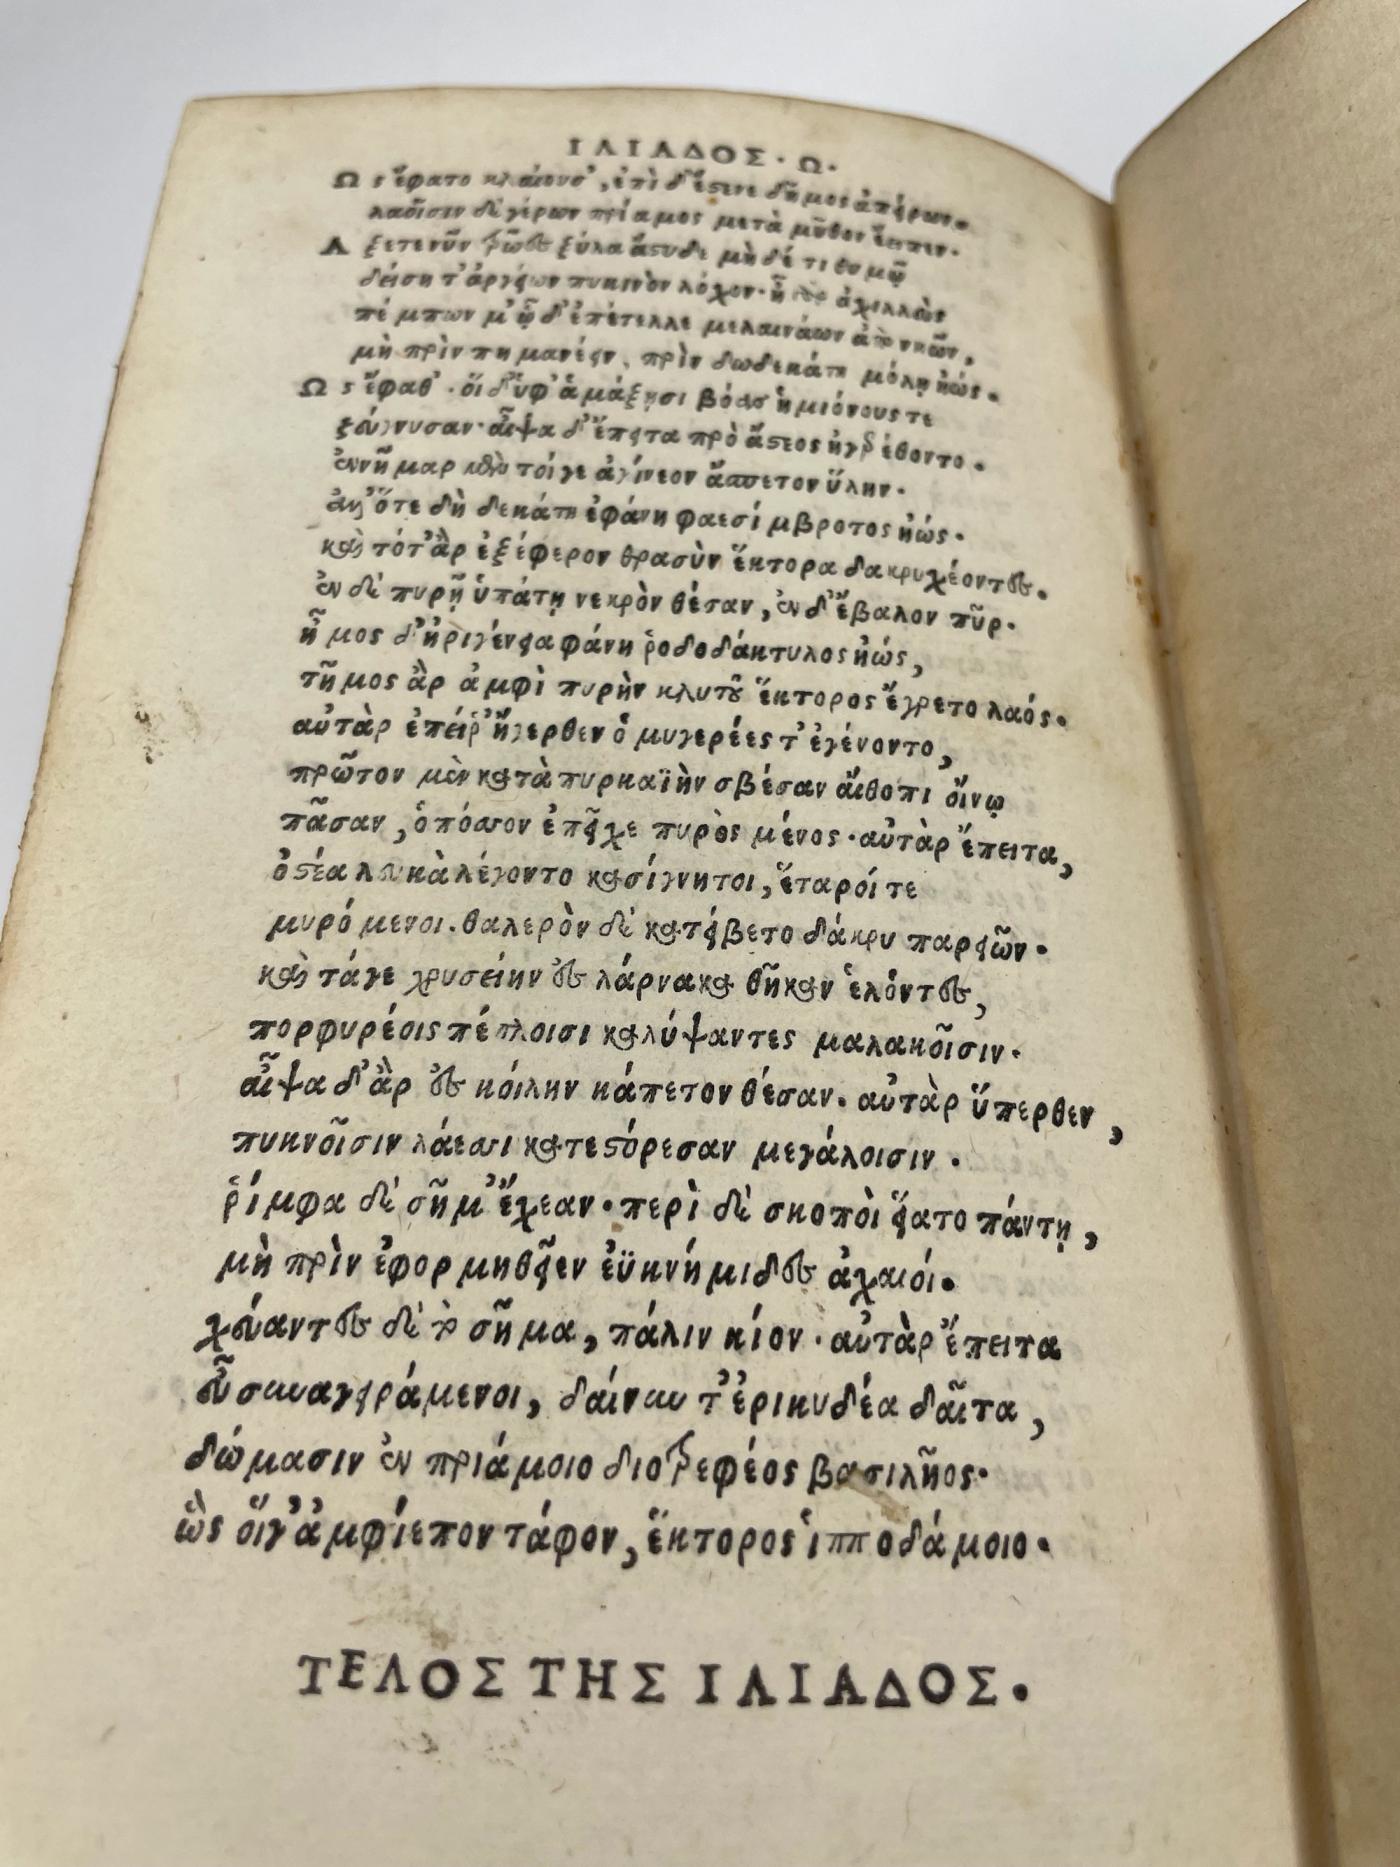 ΙΛΙΑΔΟΣ· Ω·
Ως ἔφατο κλαίουσ', ἐπὶ δ' ἔστενε δῆμος ἀπείρων.
λαοῖσιν δὲ γέρων πρίαμος μετὰ μῦθον ἔειπεν·
Αξετε νῦν τρῶες ξύλα ἄστυδε μὴ δέ τι θυμῷ
δείσητ' ἀργείων πυκινὸν λόχον· ἦ γὰρ ἀχιλλεὺς
πέμπων μ' ᾧδ' ἐπέτελλε μελαινάων ἀπὸ νηῶν,
μὴ πρὶν πημανέειν, πρὶν δωδεκάτη μόλῃ ἠώς.
Ως ἔφαθ'· οἵ δ' ὑφ' ἁμάξῃσι βόας ἡμιόνους τε
ζεύγνυσαν· αἶψα δ' ἔπειτα πρὸ ἄστεος ἠγερέθοντο.
ἐννῆμαρ μὲν τοίγε ἀγίνεον ἄσπετον ὕλην·
ἀλλ' ὅτε δὴ δεκάτη ἐφάνη φαεσίμβροτος ἠώς·
καὶ τότ' ἂρ ἐξέφερον θρασὺν ἕκτορα δακρυχέοντες.
ἐν δὲ πυρῇ ὑπάτῃ νεκρὸν θέσαν, ἐν δ' ἔβαλον πῦρ·
ἦμος δ' ἠριγένεια φάνη ῥοδοδάκτυλος ἠώς,
τῆμος ἂρ ἀμφὶ πυρὴν κλυτοῦ ἕκτορος ἔγρετο λαός.
αὐτὰρ ἐπεί ῥ' ἤγερθεν ὁμυγερέες τ' ἐγένοντο,
πρῶτον μὲν κατὰ πυρκαϊὴν σβέσαν αἴθοπι οἴνῳ
πᾶσαν, ὁπόσσον ἐπεῖχε πυρὸς μένος· αὐτὰρ ἔπειτα,
ὀστέα λευκὰ λέγοντο κασίγνητοι, ἕταροί τε
μυρόμενοι. θαλερὸν δὲ κατείβετο δάκρυ παρειῶν.
καὶ τάγε χρυσείην ἐς λάρνακα θῆκαν ἑλόντες,
πορφυρέοις πέπλοισι καλύψαντες μαλακοῖσιν·
αἶψα δ' ἂρ ἐς κοίλην κάπετον θέσαν. αὐτὰρ ὕπερθεν,
πυκνοῖσιν λάεσσι κατεστόρεσαν μεγάλοισιν.
ῥίμφα δὲ σῆμ' ἔχεαν. περὶ δὲ σκοποὶ εἵατο πάντῃ,
μὴ πρὶν ἐφορμηθεῖεν ἐϋκνήμιδες ἀχαιοί.
χεύαντες δὲ τὸ σῆμα, πάλιν κίον· αὐτὰρ ἔπειτα
εὖ συναγειράμενοι, δαίνυν τ' ἐρικυδέα δαῖτα,
δώμασιν ἐν πριάμοιο διοτρεφέος βασιλῆος·
ὣς οἵγ' ἀμφίεπον τάφον, ἕκτορος ἱπποδάμοιο.
ΤΕΛΟΣ ΤΗΣ ΙΛΙΑΔΟΣ.